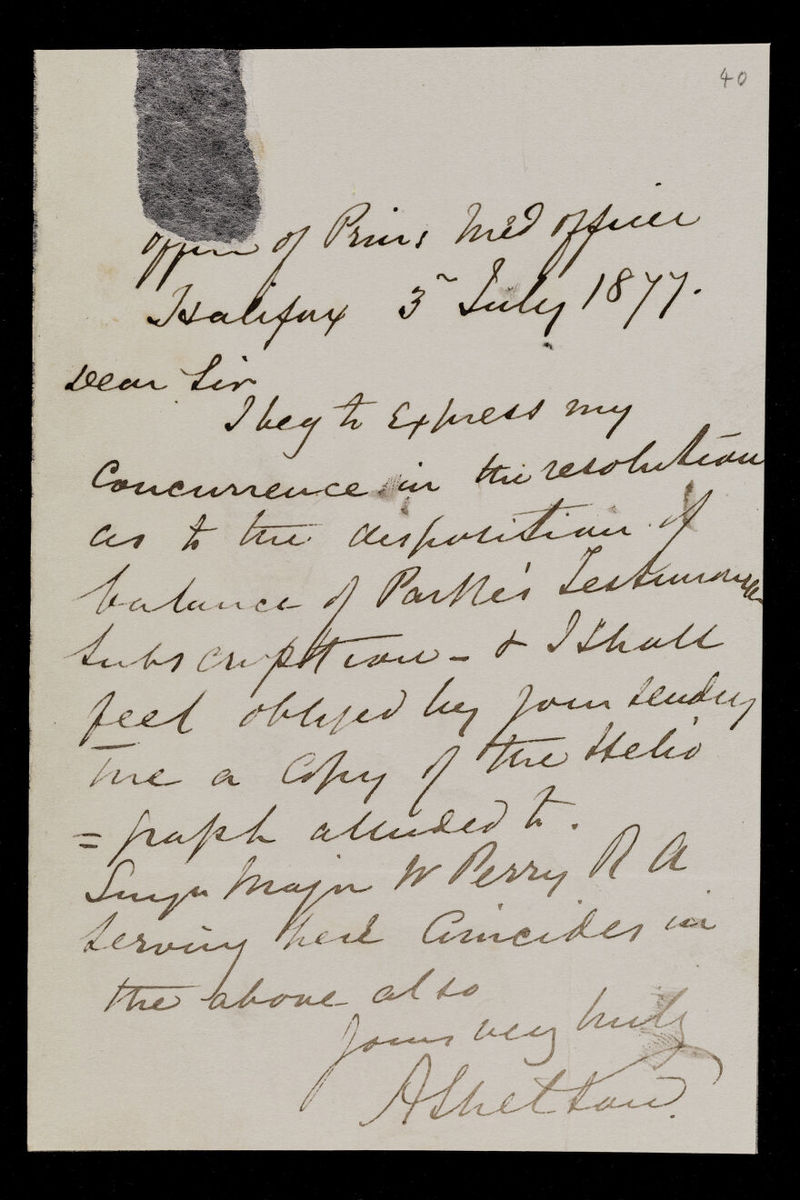 40
office of Prin: Med officer
Halifax 3rd July 1877.
Dear Sir
I beg to Express my
Concurrence in the resolution
as to the disposition of
balance of Parkes Testimonial
Subscription - & I shall
feel obliged by your sending
me a Copy of the Helio
=graph alluded to.
Surgn Major W Perry R A
Serving here Coincides in
the above also
Yours very truly
AShelton